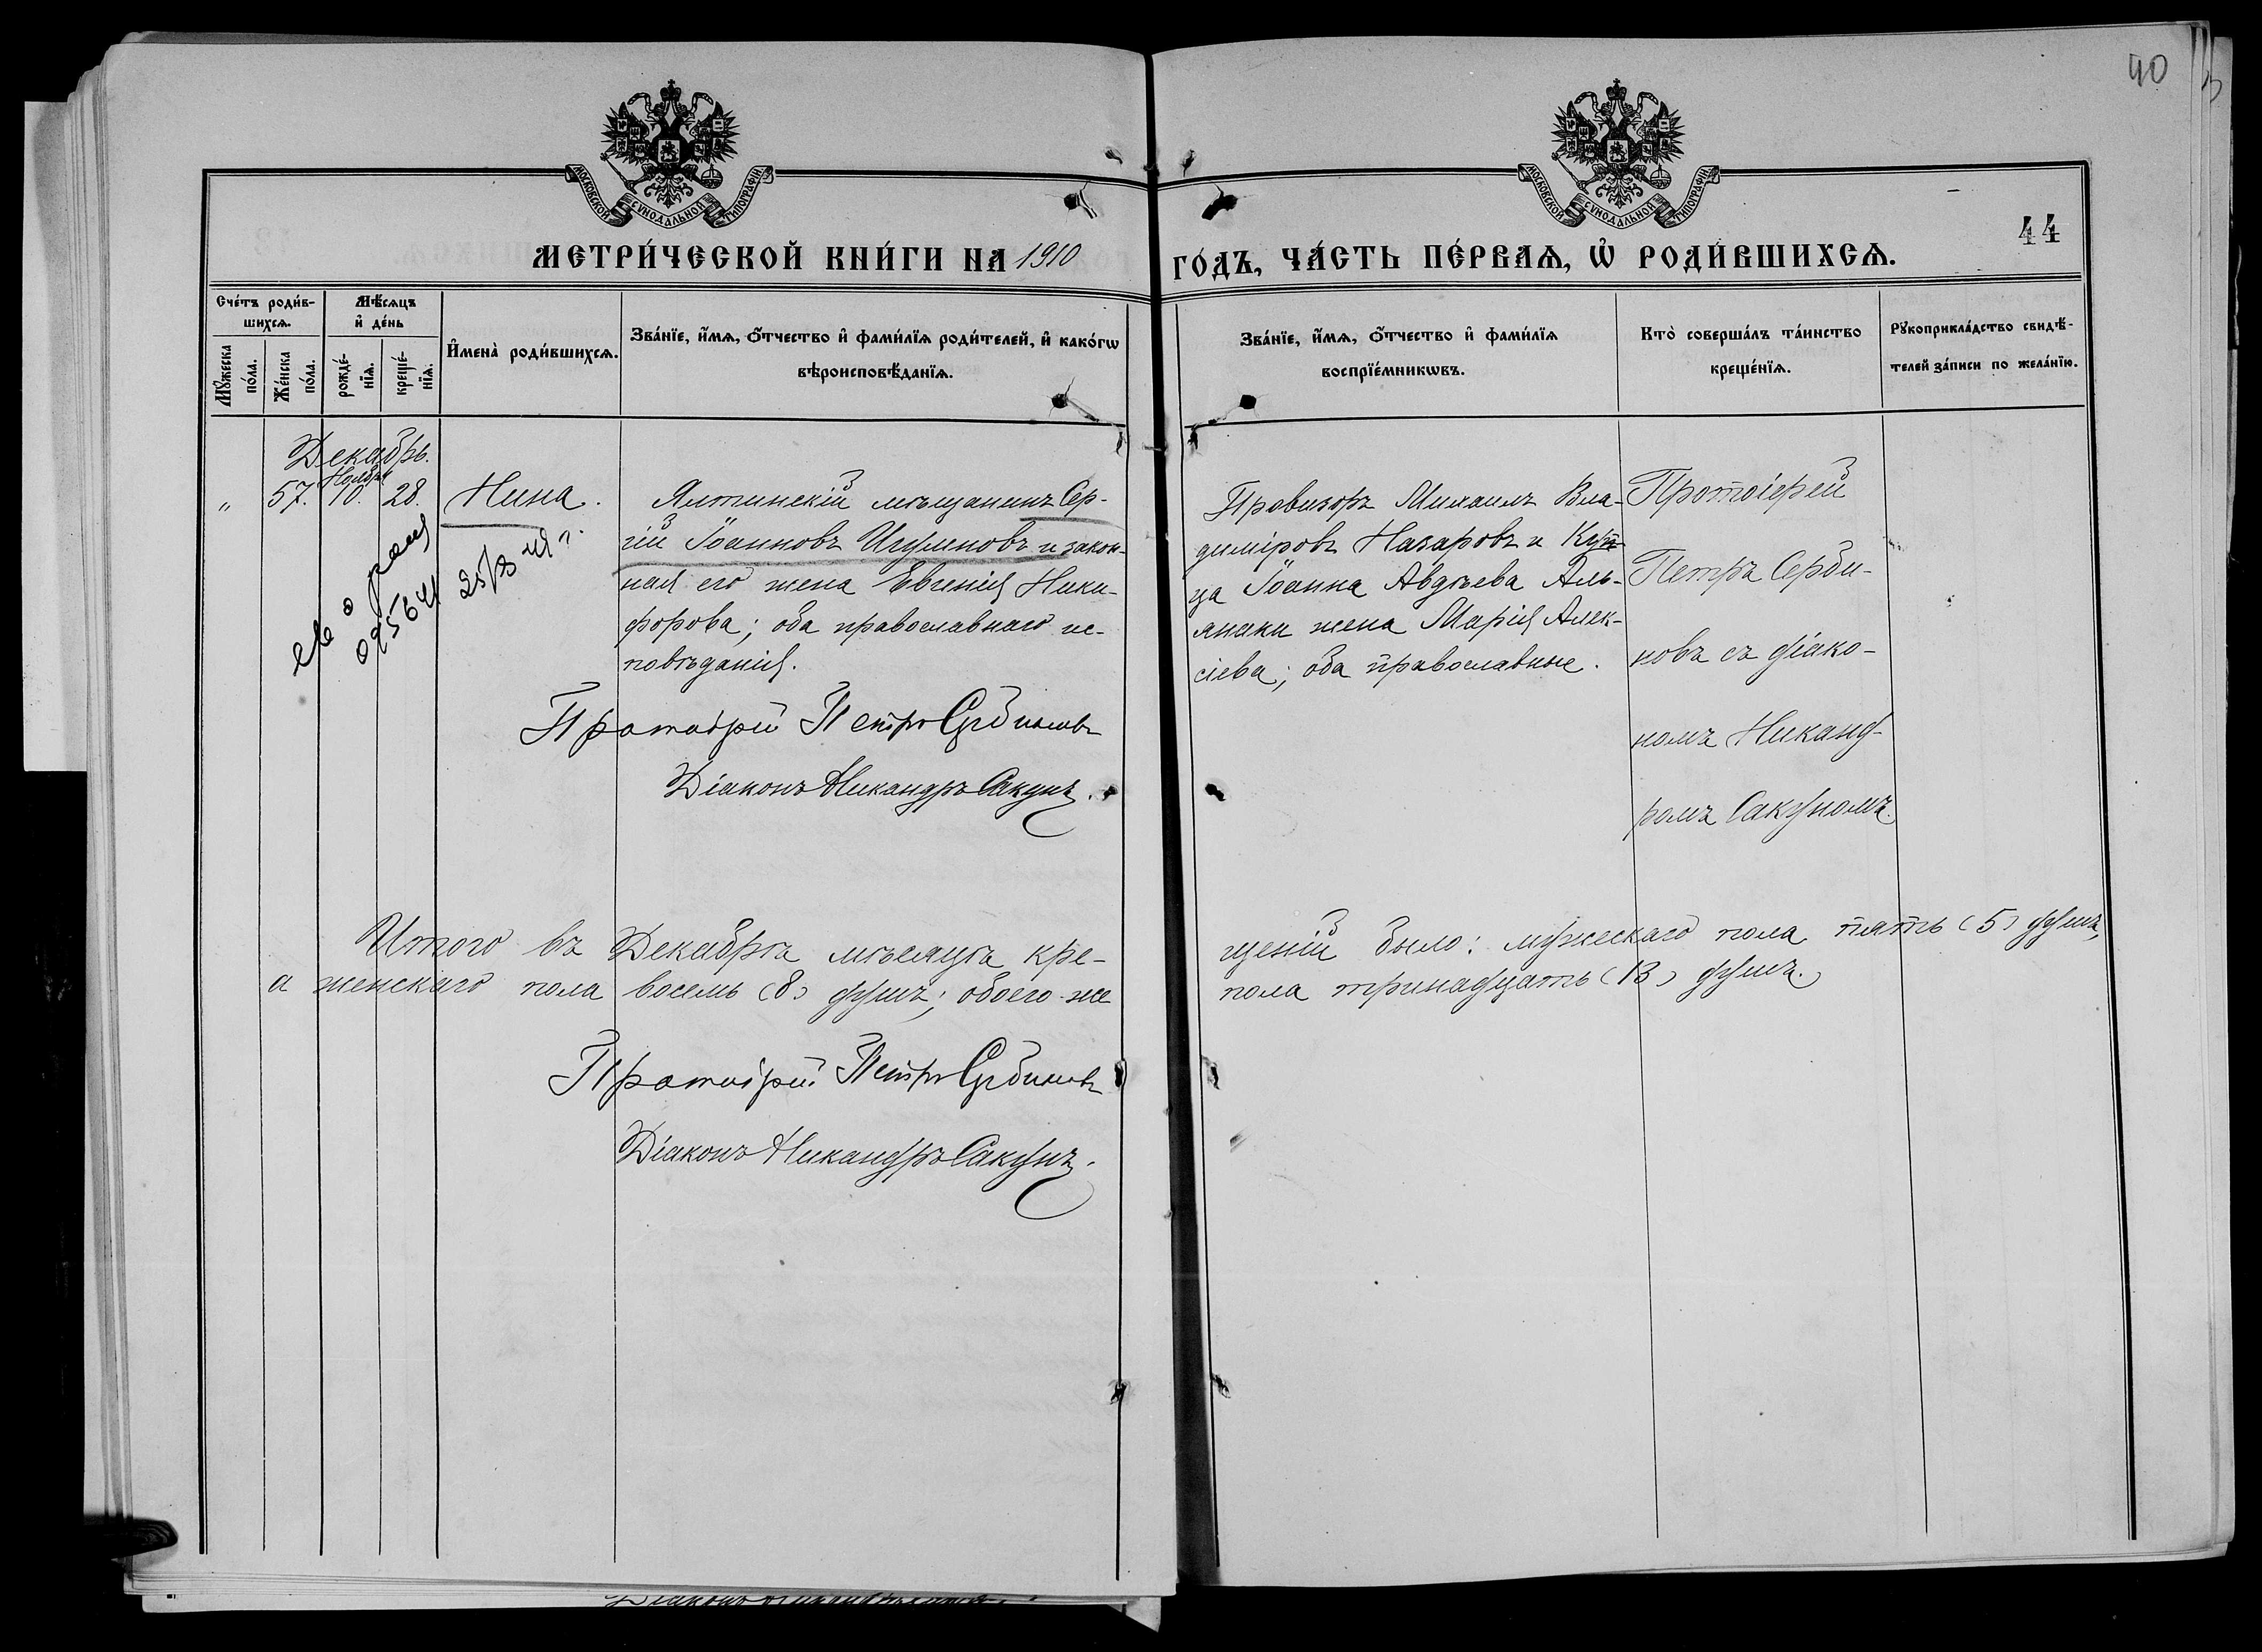 40
МОСКОВСКОЙ СѴНОДАЛЬНОЙ ТИПОГРАФІИ
МОСКОВСКОЙ СѴНОДАЛЬНОЙ ТИПОГРАФІИ
44
МЕТРИ́ЧЕСКОЙ КНИ́ГИ НА 1910 ГО́ДЪ, ЧА́СТЬ ПЕ́РВАѦ, Ѡ҆ РОДИ́ВШИХСѦ.
Сче́тъ роди́в-
шихсѧ.
Мꙋ́жеска по́ла.
Же́нска по́ла.
Мѣ́сѧцъ
и҆ де́нь
рожде́-
нїѧ.
креще́-
нїѧ.
И҆мена̀ роди́вшихсѧ.
Зва́нїе, и҆́мѧ, ѻ҆́тчество и҆ фами́лїѧ роди́телей, и҆ како́гѡ
вѣроисповѣ́данїѧ.
Зва́нїе, и҆́мѧ, ѻ҆́тчество и҆ фами́лїѧ
воспрїе́мникѡвъ.
Кто̀ соверша́лъ та́инство
креще́нїѧ.
Рꙋкоприкла́дство свидѣ́-
телей за́писи по жела́нїю.
Декабрь.
Ноября
" 57. 10. 28. Нина.
Ялтинскій мѣщанинъ Сер-
гій Іоанновъ Игумновъ и закон-
ная его жена Евгенія Ники-
форова; оба православнаго ис-
повѣданія.
Провизоръ Михаилъ Вла-
диміровъ Назаровъ и Куп-
ца Іоанна Авдѣева Аль-
янаки жена Марія Алек-
сіева; оба православные.
Протоіерей
Петръ Серби-
новъ съ діако-
номъ Никанд-
ромъ Сакуномъ.
о
09564 25/
Протоіерей Петръ Сербиновъ
Діаконъ Никандръ Сакунъ.
Итого въ Декабрѣ мѣсяцѣ кре-
щеній было: мужескаго пола пять (5) душъ,
а женскаго пола восемь (8) душъ; обоего же
пола тринадцать (13) душъ.
Протоіерей Петръ Сербиновъ
Діаконъ Никандръ Сакунъ.